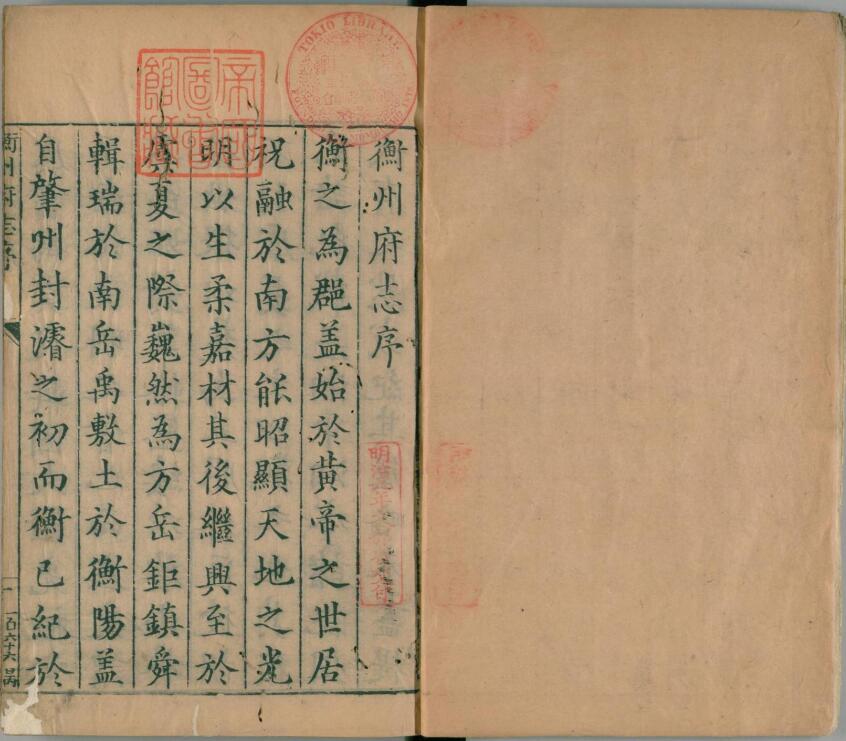 衡州府志序
衡之為郡盖始於黄帝之世居
祝融於南方能昭顯天地之光
明以生柔嘉材其後繼興至於
虞夏之際巍然為方岳鉅鎮舜
輯瑞於南岳禹敷土於衡陽盖
自肇州封濬之初而衡已紀於
衡州府志序
一百六十六
TOKIO LIBRARY
帝國圖書館藏